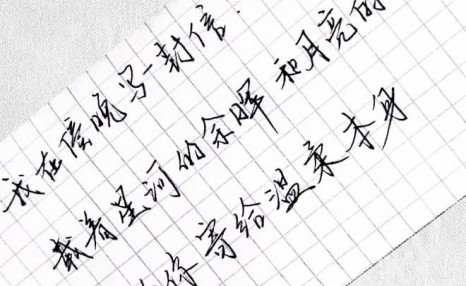 我在傍晚写一封信.
载着星河的余晖 和月亮的
你寄给温柔本身